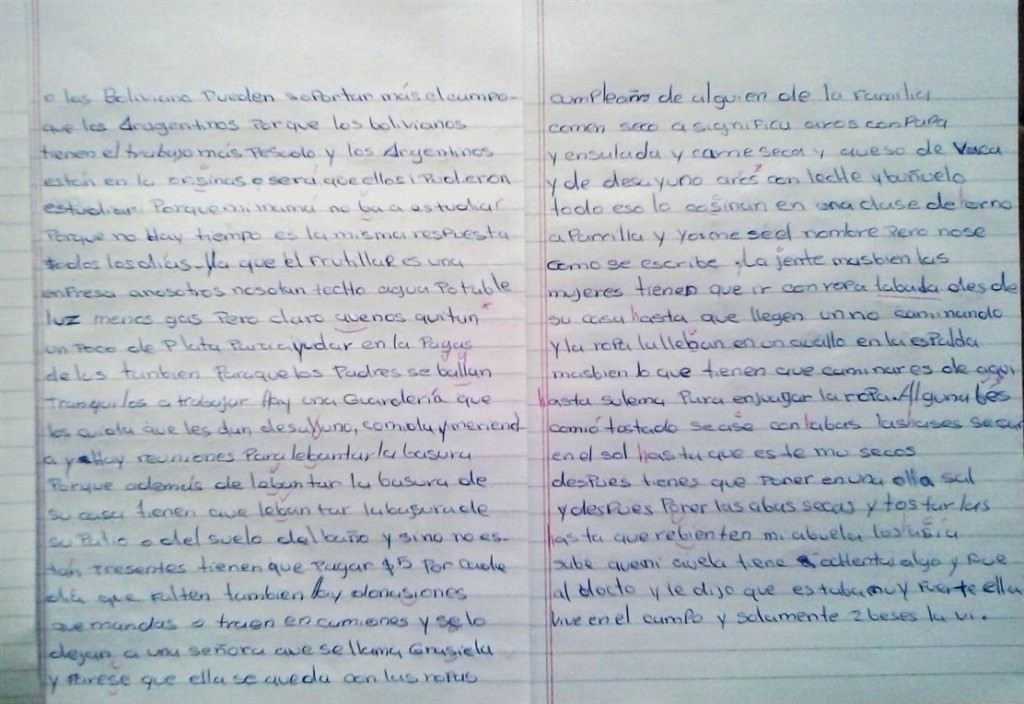 o las Boliviano Pueden soportar más el campo
que los Aragentinos Porque los bolivianos
tienen el trabajo más Pesado y los Argentinos
están en la ofisinas o será que ellos si Pudieron
estudiar. Porque mi mamá no ba a estudiar
Porque no Hay tiempo es la misma respuesta
todos los días. Ya que el Frutillar es una
enPresa anosotros nos dan techo agua Potable
luz menos gas Pero claro quenos quitan
un Poco de Plata Para ayudar en la Pagas
de las tanbien Para que los Padres se ballan
tranquilos a trabajar Hay una Guardería que
los cuida que les dan desalluno, comida y meriend
a y Hay reuniones Para lebantar la basura
Porque además de lebantar la basura de
su casa tienen que lebantar la basura de
su Patio o del suelo del baño y sino no es-
tán Presentes tienen que Pagar $5 Por cada
día que falten tambien Hay donasiones
que mandas o traen en camiones y se lo
dejan a una señora que se llama Grasiela
y Parese que ella se queda con las ropas
cumpleaño de alguien de la Familia
comen seco a significa aros con PaPa
y ensalada y carne seca y queso de vaca
y de desayuno arós con leche y buñuelo
todo eso lo cosinan en una clase de orno
a Parrilla y Yo me se el nombre Pero no se
como se escribe. La jente masbien las
mujeres tienen que ir con ropa labada desde
su casa hasta que llegen un rio caminando
y la ropa la lleban en un avallo en la espalda
masbien lo que tienen que caminar es de aqui
hasta solema Para enjuagar la ropa. Alguna bes
comió tostado se ase con abas las ases secar
en el sol hasta que este mu secos
despues tienes que Poner en una olla sal
y despues Poner las abas secas y tostar las
hasta que rebienten mi abuela los asia
sabe que mi avela tiene ochenta i algo y fue
al docto y le dijo que estuba muy fuerte ella
vive en el campo y solamente 2 beses la vi.